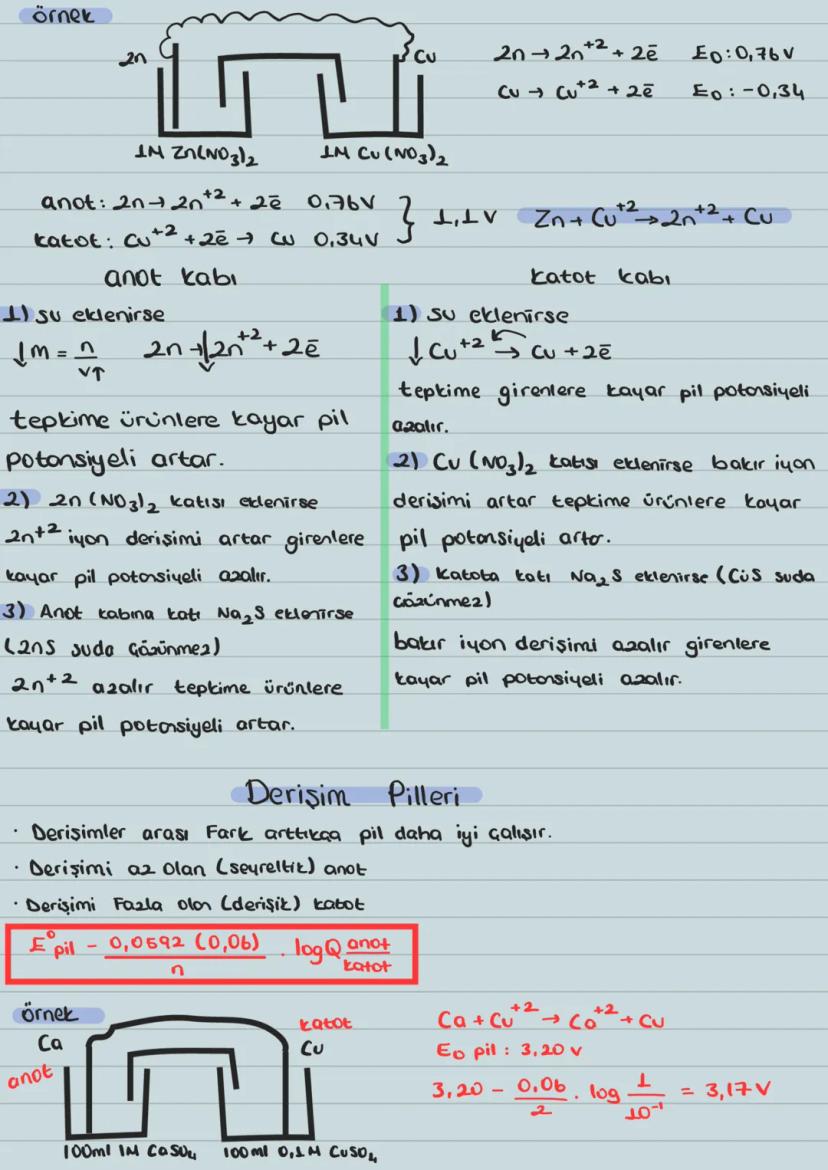 örnek
Zn
Cu
1M Zn(NO₃)₂
1M Cu(NO₃)₂
Zn → Zn⁺² + 2ē E₀: 0,76 V
Cu → Cu⁺² + 2ē E₀: -0,34
anot: Zn → Zn⁺² + 2ē 0,76V
katot: Cu⁺² + 2ē → Cu 0,34V
} 1,1 V Zn + Cu⁺² → Zn⁺² + Cu
anot kabı
1) su eklenirse
↓m = n/v↑ Zn → ↓Zn⁺² + 2ē
tepkime ürünlere kayar pil
potansiyeli artar.
2) Zn(NO₃)₂ katısı eklenirse
Zn⁺² iyon derişimi artar girenlere
kayar pil potansiyeli azalır.
3) Anot kabına katı Na₂S eklenirse
(ZnS suda çözünmez)
Zn⁺² azalır tepkime ürünlere
kayar pil potansiyeli artar.
katot kabı
1) su eklenirse
↓Cu⁺² → Cu + 2ē
tepkime girenlere kayar pil potansiyeli
azalır.
2) Cu(NO₃)₂ katısı eklenirse bakır iyon
derişimi artar tepkime ürünlere kayar
pil potansiyeli artar.
3) Katoba katı Na₂S eklenirse (CuS suda
çözünmez)
bakır iyon derişimi azalır girenlere
kayar pil potansiyeli azalır.
Derişim Pilleri
· Derişimler arası Fark arttıkça pil daha iyi çalışır.
· Derişimi az olan (seyreltik) anot
· Derişimi Fazla olan (derişik) katot
E⁰pil - 0,0592 (0,06)/n . logQ anot/katot
örnek
Ca
anot
katot
Cu
100ml 1M CaSO₄
100ml 0,1M CuSO₄
Ca + Cu⁺² → Ca⁺² + Cu
E₀ pil : 3,20 v
3,20 - 0,06/2 . log 1/10⁻¹ = 3,17 V